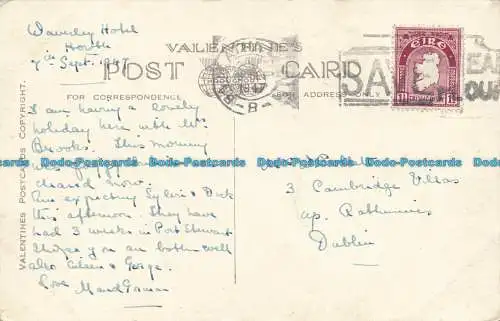 Waverley Hotel
Howth
7th Sept. 1947
VALENTINE'S
POST CARD
FOR CORRESPONDENCE
ADDRESS ONLY
1947
ÉIRE
VALENTINES POSTCARDS COPYRIGHT.
I am having a lovely
holiday here with Mr
Brooks. This morning
cleared now.
Am expecting Sylvia & Dick
this afternoon. They have
had 3 weeks in Port Stewart
I hope you are both well
also Eileen & George.
Love
3 Cambridge Villas
Rathmines
Dublin
Dodo-Postcards Dodo-Postcards Dodo-Postcards Dodo-Postcards Dodo-Postcards